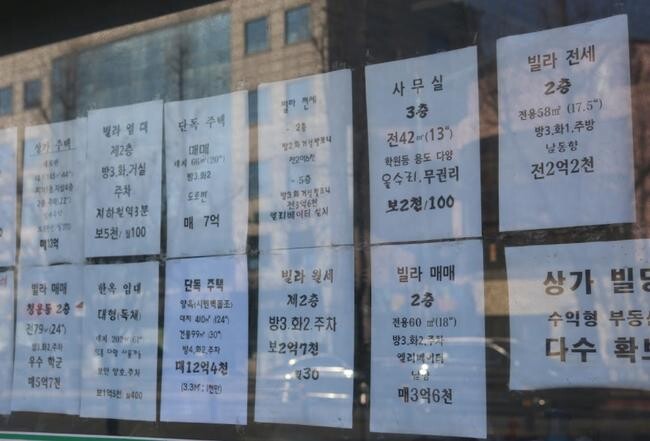 상가 주택
매13억
빌라 임대
제2층
방3,화,거실
주차
지하철역3분
보5천/월100
단독 주택
매매
대지 66㎡(20")
방3,화2
도로변
매 7억
빌라 전세
-2층
전2억5천
-5층
전3억6천
엘리베이터 설치
사무실
3층
전42㎡(13")
학원등 용도 다양
올수리,무권리
보2천/100
빌라 전세
2층
전용58㎡ (17.5")
방3,화1,주방
남동향
전2억2천
빌라 매매
청운동 2층
전79㎡(24")
방3,화2,주차
우수 학군
매5억7천
한옥 임대
대형(독채)
보안 양호,주차
보1억5천/월400
단독 주택
양옥(시원벽돌조)
대지 410㎡(124")
건물99㎡(30")
방4,화2,주차
매12억4천
(3.3㎡:1천만)
빌라 월세
제2층
방3.화2.주차
보2억7천
월30
빌라 매매
2층
전용60㎡(18")
방3,화2,주차
엘리베이터
남향
매3억6천
상가 빌딩
수익형 부동산
다수 확보